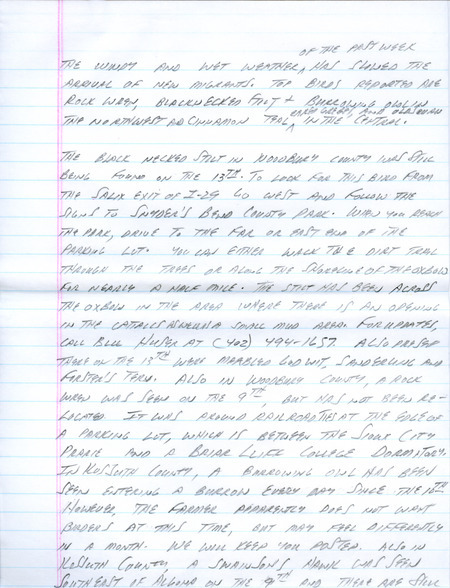 OF THE PAST WEEK
THE WINDY AND WET WEATHER, HAS SLOWED THE
ARRIVAL OF NEW MIGRANTS. TOP BIRDS REPORTED ARE
ROCK WREN, BLACKNECKED STILT + BURROWING OWL IN
THE NORTHWEST AD CINNAMON TEAL, IN THE CENTRAL.
THE BLACK NECKED STILT IN WOODBURY COUNTY WAS STILL
BEING FOUND ON THE 13TH. TO LOOK FOR THIS BIRD FROM
THE SALIX EXIT OF I-29 GO WEST AND FOLLOW THE
SIGNS TO SNYDER'S BEND COUNTY PARK. WHEN YOU REACH
THE PARK, DRIVE TO THE FAR OR EAST END OF THE
PARKING LOT. YOU CAN EITHER WALK THE DIRT TRAIL
THROUGH THE TREES OR ALONG THE SHORELINE OF THE OXBOW
FOR NEARLY A HALF MILE. THE STILT HAS BEEN ACROSS
THE OXBOW IN THE AREA WHERE THERE IS AN OPENING
IN THE CATTAILS A SMALL MUD AREA. FOR UPDATES,
CALL BILL HUSER AT (402) 494-1657. ALSO PRESENT
THERE ON THE 13TH WERE MARBLED GODWIT, SANDERLING AND
FORSTER'S TERN. ALSO IN WOODBURY COUNTY, A ROCK
WREN WAS SEEN ON THE 9TH, BUT HAS NOT BEEN RE-
LOCATED IT WAS AROUND RAILROAD TIES AT THE EDGE OF
A PARKING LOT, WHICH IS BETWEEN THE SIOUX CITY
PRARIE AND A BRIAR CLIFF COLLEGE DORMITORY.
IN KOSSUTH COUNTY, A BURROWING OWL HAS BEEN
SEEN ENTERING A BURROW EVERY DAY SINCE THE 10TH
HOWEVER, THE FARMER APPARENTLY DOES NOT WANT
BIRDERS AT THIS TIME, BUT MAY FEEL DIFFERENTLY
IN A MONTH. WE WILL KEEP YOU POSTED. ALSO IN
KOSSUTH COUNTY, A SWAINSON'S HAWK WAS SEEN
SOUTHEAST OF ALGONA ON THE 9TH AND THERE ARE STILL